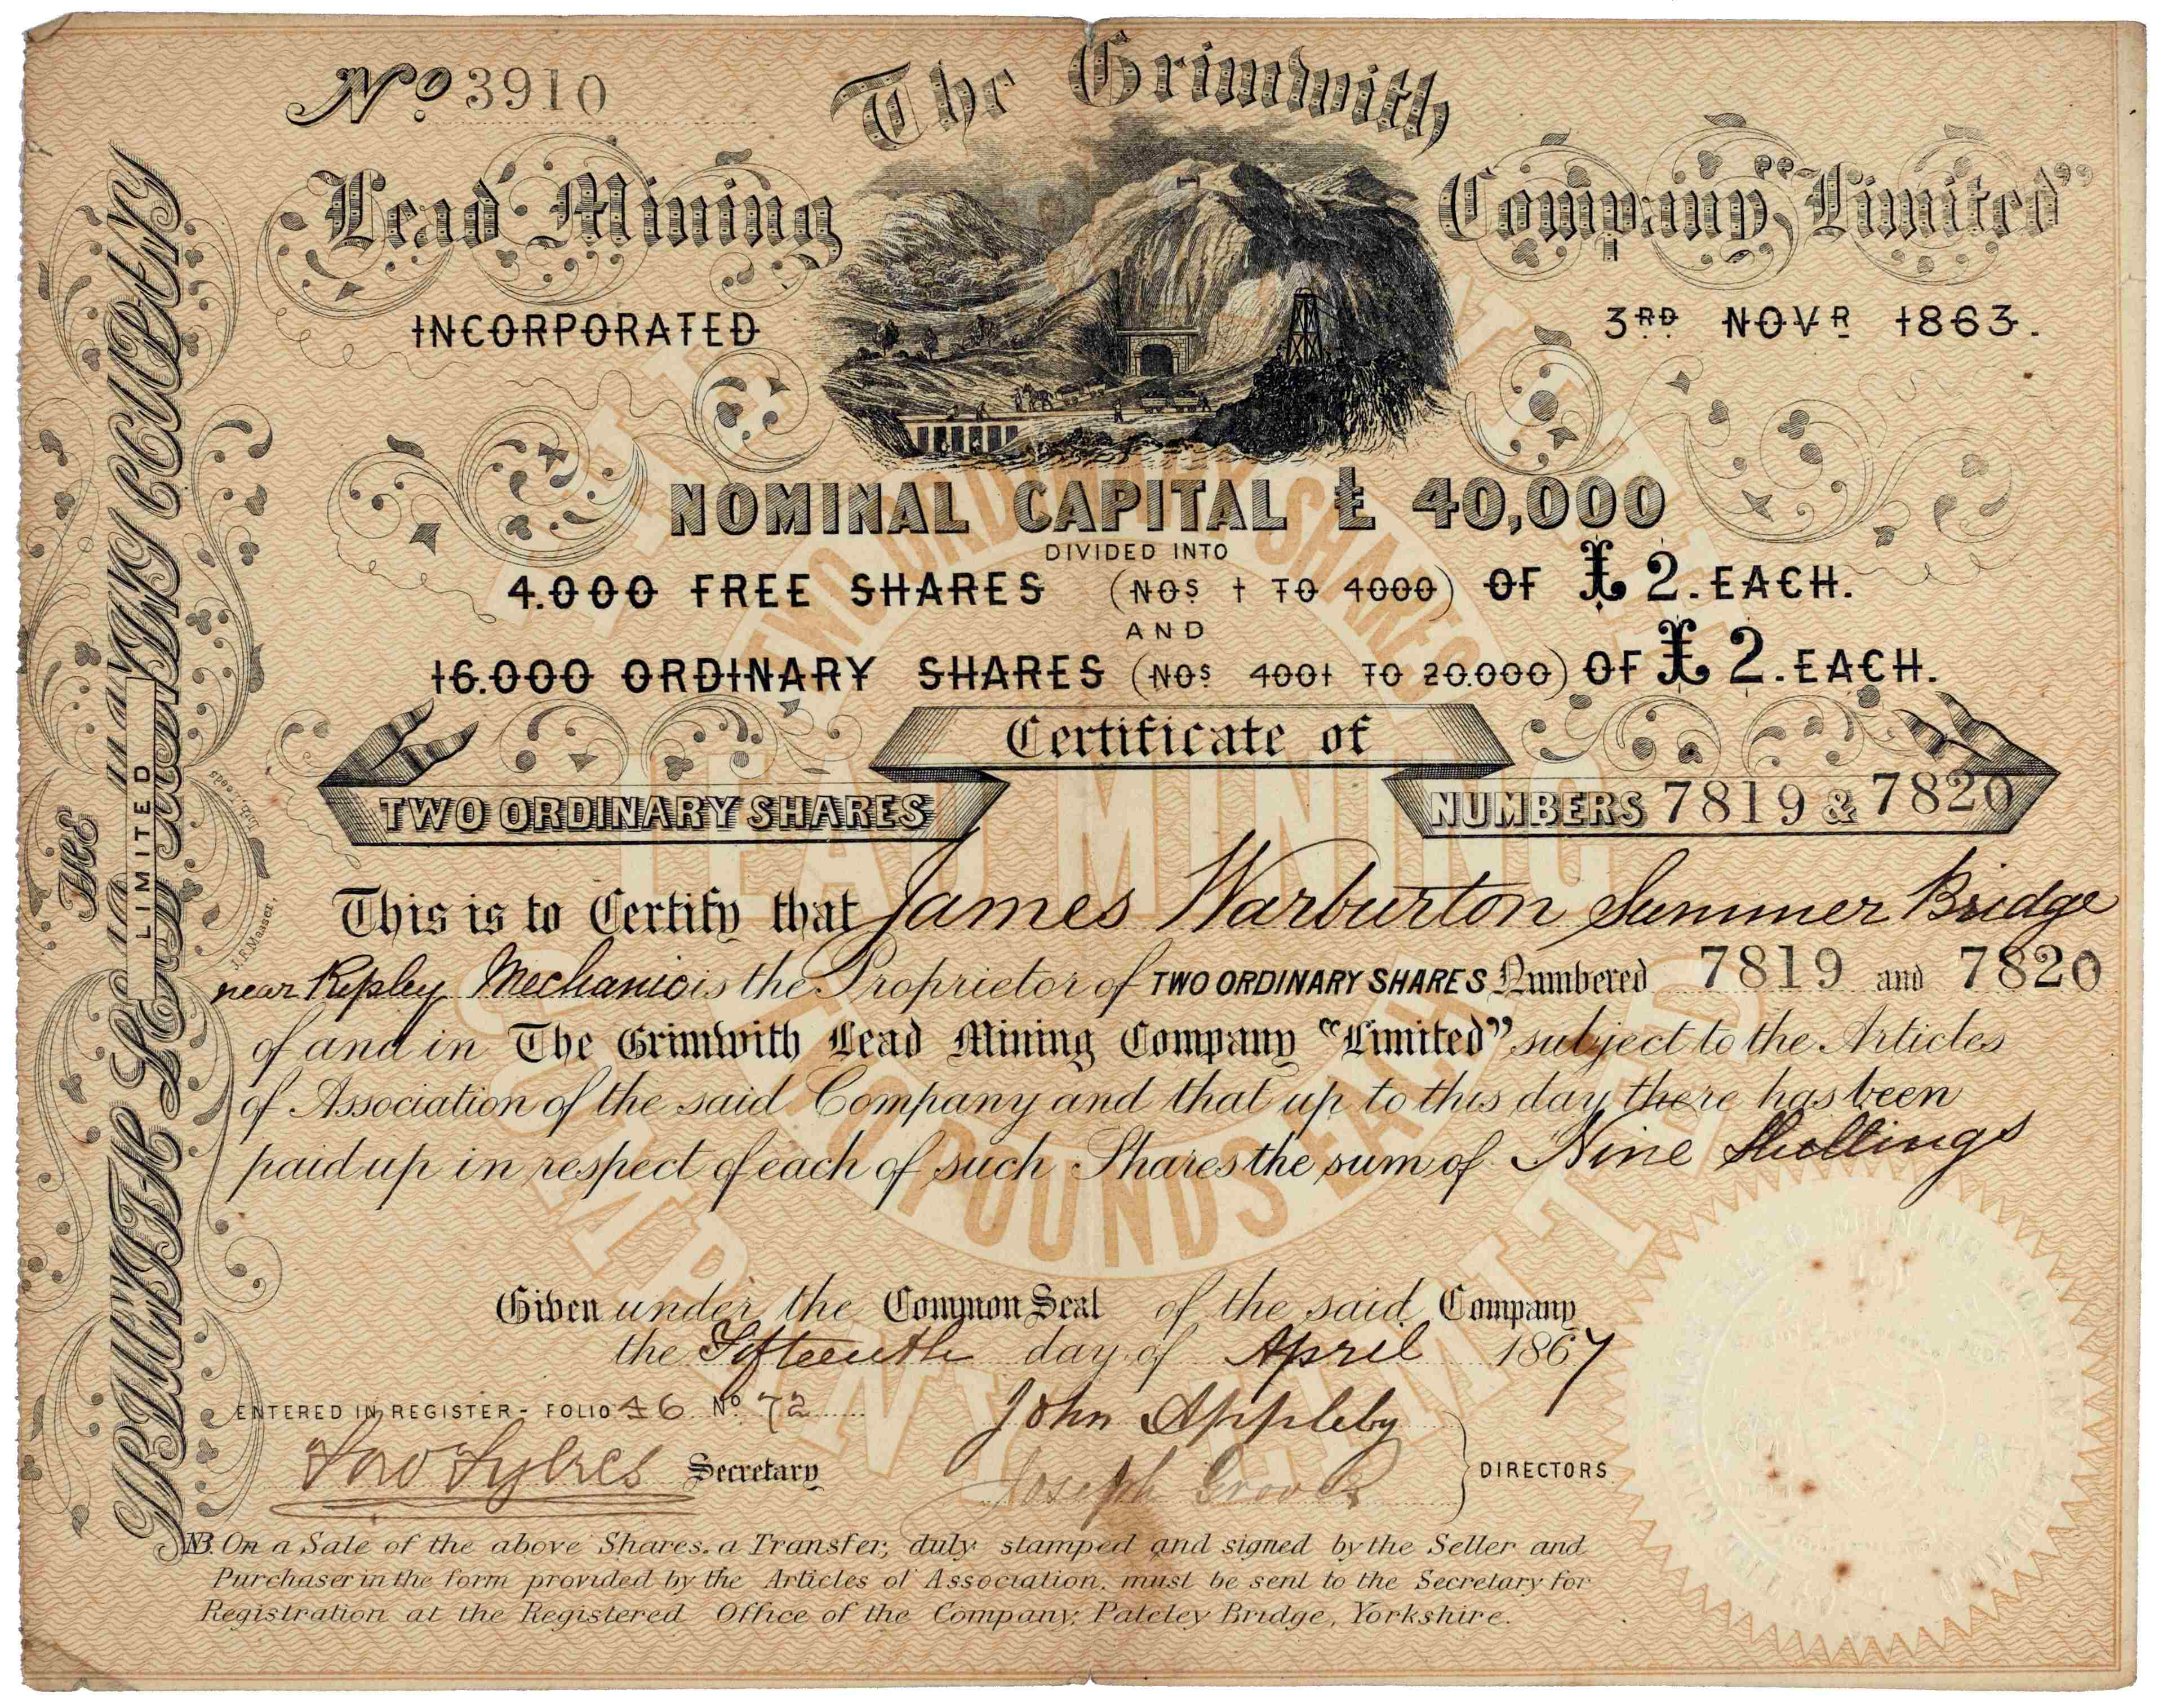 No 3910
The Grimwith
Lead Mining Company, "Limited"
INCORPORATED 3RD NOVR 1863.
NOMINAL CAPITAL £ 40,000
DIVIDED INTO
4.000 FREE SHARES (NOS 1 TO 4000) OF £2. EACH.
AND
16.000 ORDINARY SHARES (NOS 4001 TO 20.000) OF £2. EACH.
Certificate of
TWO ORDINARY SHARES NUMBERS 7819 & 7820
This is to Certify that James Warburton Summer Bridge
near Ripley Mechanic is the Proprietor of TWO ORDINARY SHARES Numbered 7819 and 7820
of and in The Grimwith Lead Mining Company "Limited" subject to the Articles
of Association of the said Company and that up to this day there has been
paid up in respect of each of such Shares the sum of Nine Shillings
Given under the Common Seal of the said Company
the Fifteenth day of April 1867
ENTERED IN REGISTER - FOLIO 46 No 72
John Appleby
Sykes Secretary
Joseph
DIRECTORS
NB. On a Sale of the above Shares, a Transfer, duly stamped and signed by the Seller and
Purchaser in the form provided by the Articles of Association, must be sent to the Secretary for
Registration at the Registered Office of the Company; Pateley Bridge, Yorkshire.
LIMITED
J.F. Masser,
Lith. Leeds
LEAD MINING
TWO ORDINARY SHARES
TWO POUNDS EACH
COMPANY LIMITED